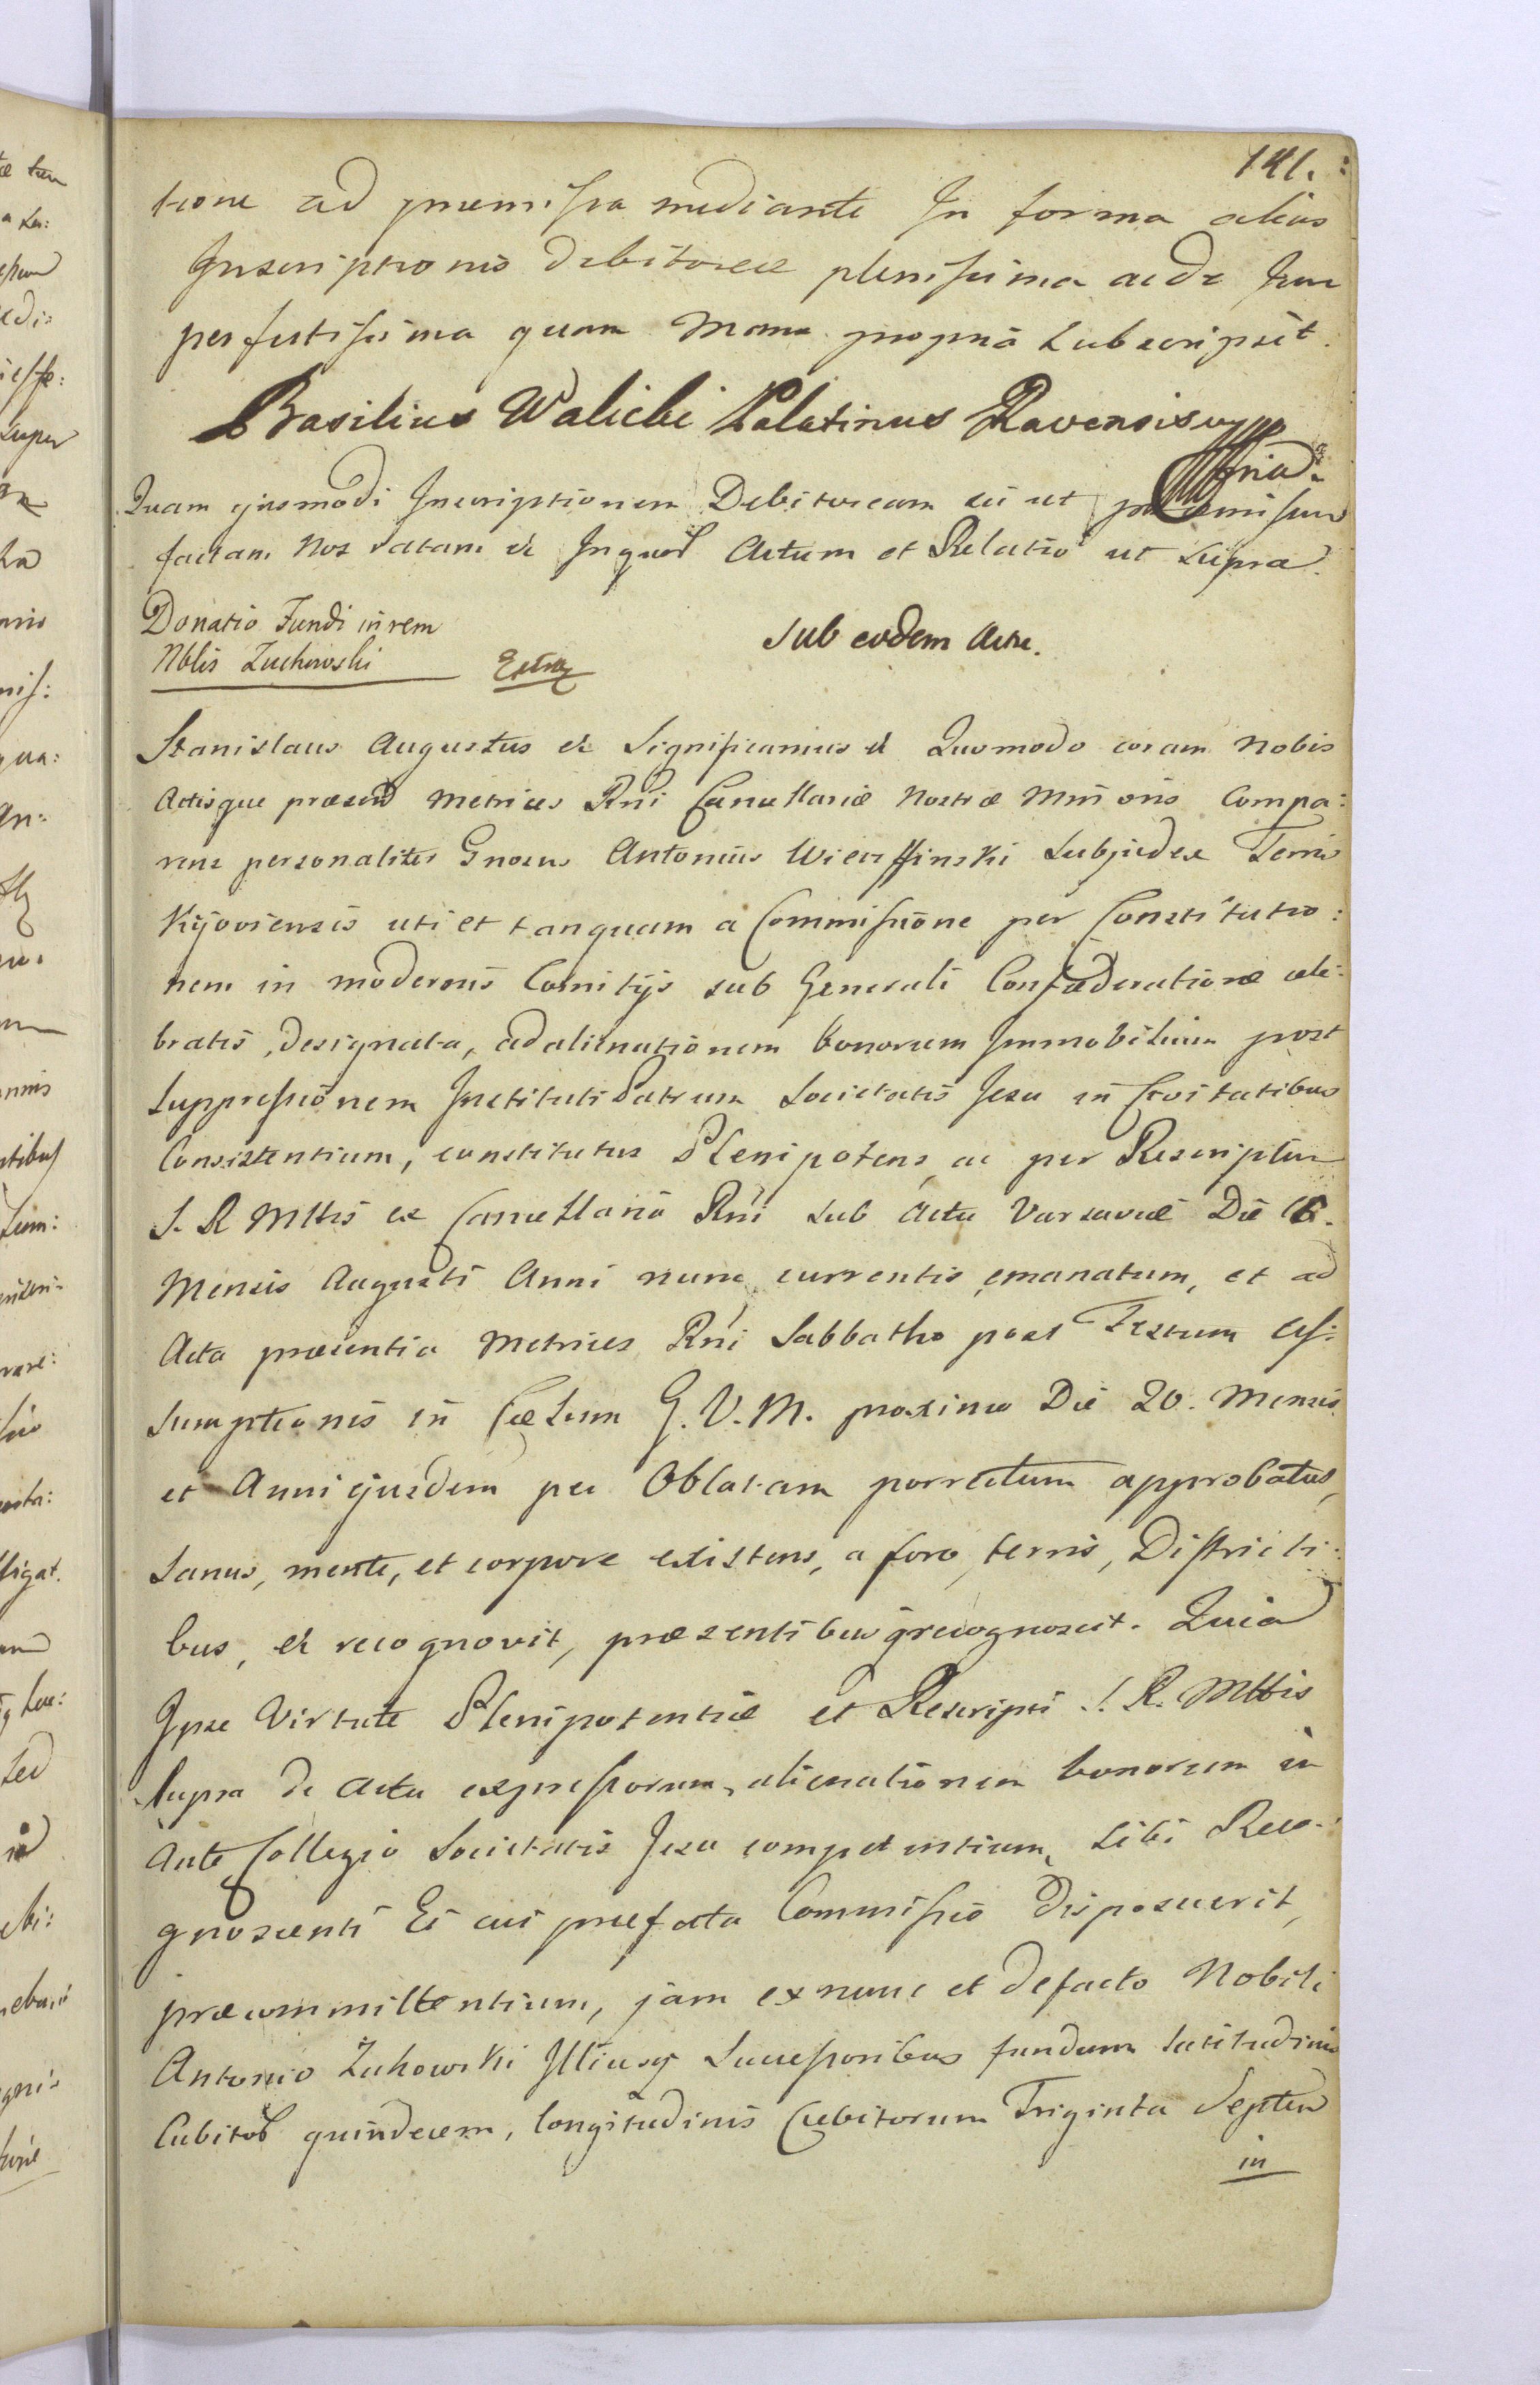 141.
tione ad præmissa mediante In forma alias
Inscriptionis debitoreæ plenissima acde Jure
perfectissima quam Manu propria Subscripsit.
Basilius Walicki Palatinus Ravensis
Quam ejusmodi Inscriptionem Debitoream sic ut præmissum
factam Nos ratam &c Inquor Actum et Relatio ut supra.
Donatio Fundi in rem
Nblis Zuchowski
Sub eodem Actu.
Stanislaus Augustus &c Significamus &c Quomodo coram Nobis
Actisque præsend Metrices Rni Cancellariæ Nostræ Minoris Compa:
rens personaliter Gnosus Antonius Subjudex Terris
Kijoviensis uti et tanquam a Commissione per Constitutio:
nem in modernis Comitijs sub Generali Confæderatione cele:
bratis, designata, ad alienationem bonorum Immobilium post
Suppressionem Instituti Patrum Societatis Jesu in Civitatibus
Consistentium, constitutus Plenipotens ac per Rescriptum
S. R Mttis ex Cancellaria Rni sub Actu Varsaviæ Die
Mensis Augusti Anni nunc currentis emanatum, et ad
Acta præsentia Metrices Rni Sabbatho post Festum As:
sumptionis in Cœlum G. V. M. proximo Die 20. Mensis
et Anni ejusdem per Oblatam porrectum approbatus,
Sanus, mente, et corpore existens, a foro, terris, Districti:
bus, &c recognovit, præsentibusq recognoscit. Quia
Ipse Virtute Plenipotentiæ et Rescripti S. R. Mttis
supra de actu expressorum, alienationem bonorum in
Ante Collegio Societatis Jesu competentium, sibi Reco:
gnoscenti Ei cui præfata Commissio disposuerit,
præcommittentium, jam ex nunc et defacto Nobili
Antonio Zuhowski Illiusq Successoribus fundum latitudinis
Cubitor quindecem, longitudinis Cubitorum Triginta Septem
in